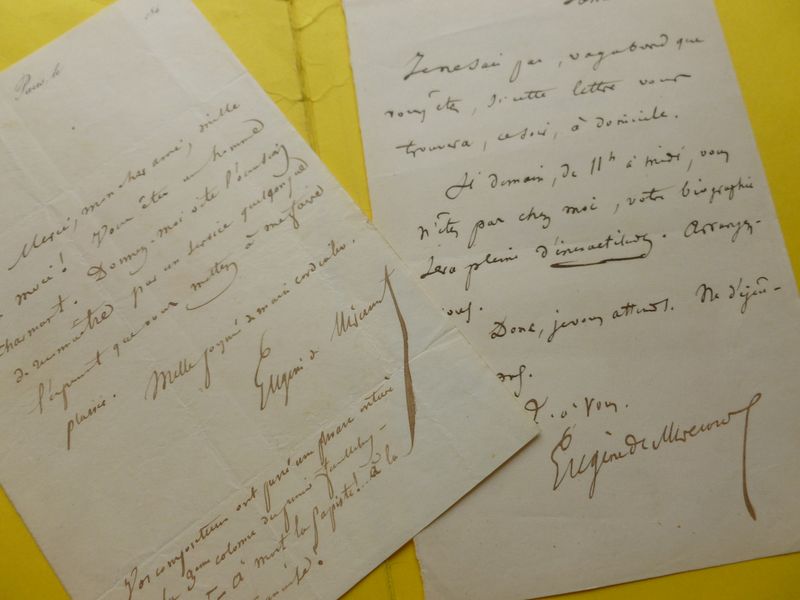 Merci, mon cher ami, mille
merci! Vous êtes un homme
charmant. Donnez-moi vite l'occasion
de reconnaître par un service quelconque
l'empressement que vous mettez à me faire
plaisir. Mille poignées de main cordiales.
Eugène de Mirecourt
Vos compositeurs ont passé une phrase entière
3eme colonne du premier feuilleton
à mort la papiste!.. à la
Je ne sais pas, vagabond que
vous êtes, si cette lettre vous
trouvera, ce soir, à domicile.
Si demain, de 11h à midi, vous
n'êtes pas chez moi, votre biographie
sera pleine d'inexactitudes. Arrangez-
vous.
Donc, je vous attends. Ne déjeu-
à vous.
Eugène de Mirecourt